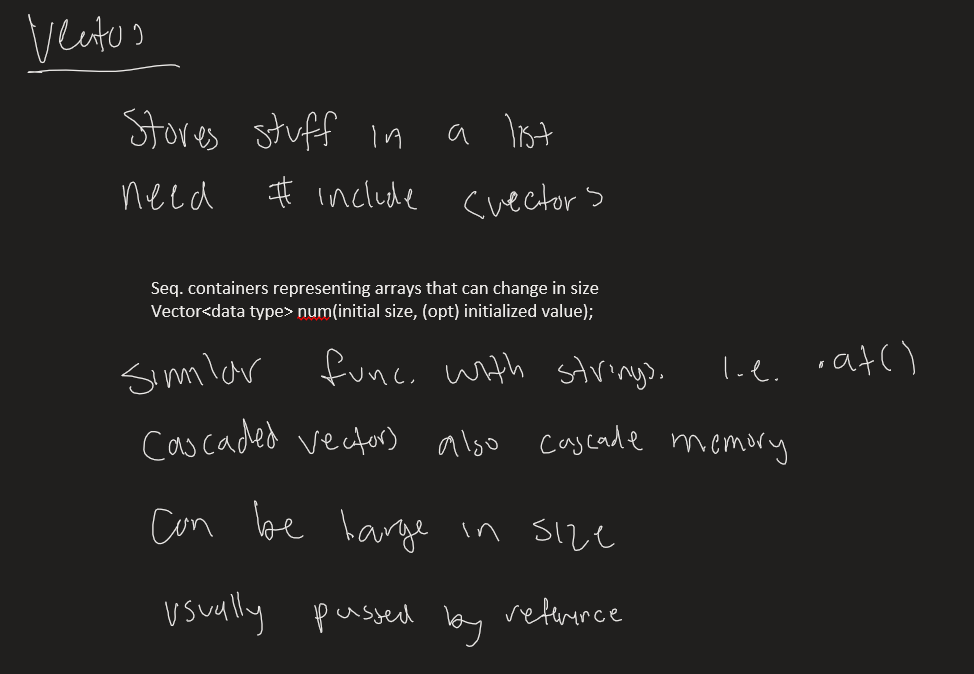 Vectors
Stores stuff in a list
Need #include <vector>
Seq. containers representing arrays that can change in size
Vector<data type> num(initial size, (opt) initialized value);
Similar func. with strings. i.e. .at()
Cascaded vectors also cascade memory
Can be large in size
Usually passed by reference